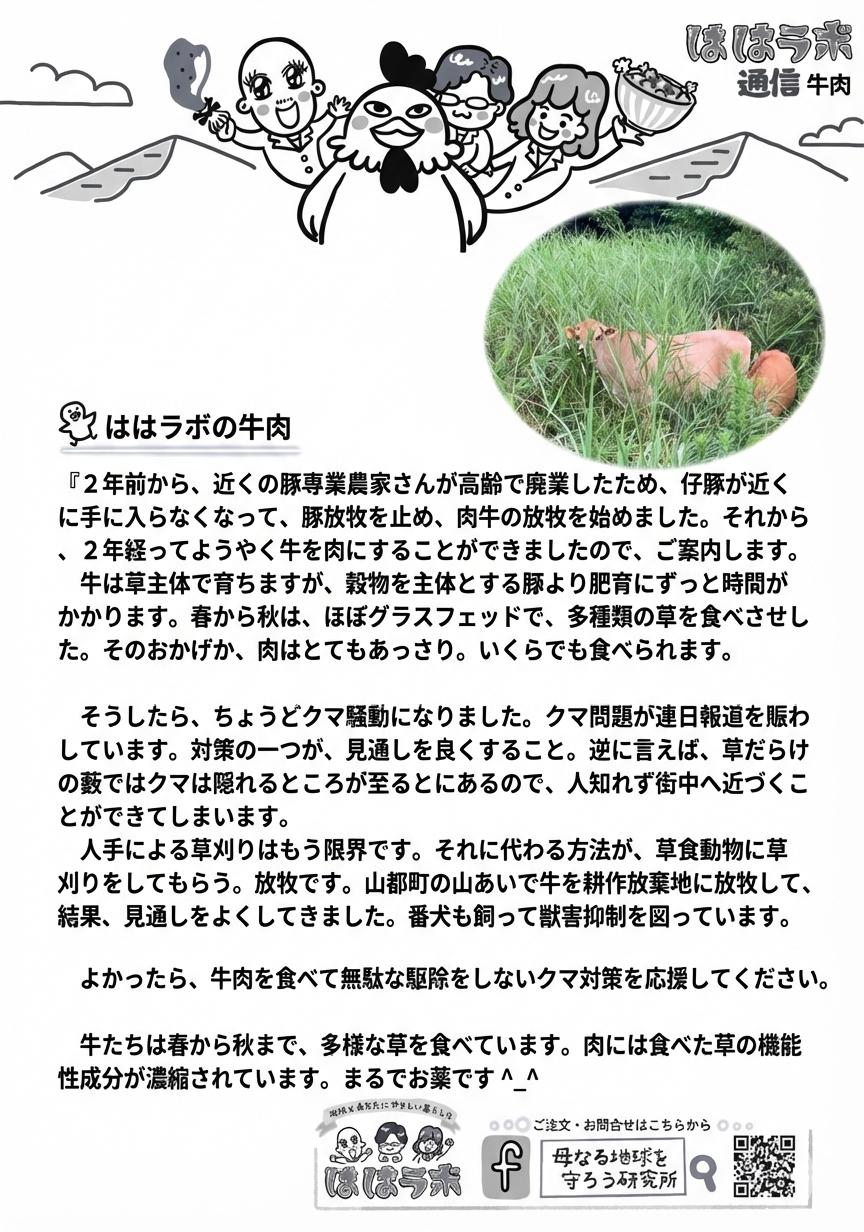 ははラボ
通信 牛肉
ははラボの牛肉
『２年前から、近くの豚専業農家さんが高齢で廃業したため、仔豚が近く
に手に入らなくなって、豚放牧を止め、肉牛の放牧を始めました。それから
、２年経ってようやく牛を肉にすることができましたので、ご案内します。
　牛は草主体で育ちますが、穀物を主体とする豚より肥育にずっと時間が
かかります。春から秋は、ほぼグラスフェッドで、多種類の草を食べさせし
た。そのおかげか、肉はとてもあっさり。いくらでも食べられます。
　そうしたら、ちょうどクマ騒動になりました。クマ問題が連日報道を賑わ
しています。対策の一つが、見通しを良くすること。逆に言えば、草だらけ
の藪ではクマは隠れるところが至るとにあるので、人知れず街中へ近づくこ
とができてしまいます。
　人手による草刈りはもう限界です。それに代わる方法が、草食動物に草
刈りをしてもらう。放牧です。山都町の山あいで牛を耕作放棄地に放牧して、
結果、見通しをよくしてきました。番犬も飼って獣害抑制を図っています。
　よかったら、牛肉を食べて無駄な駆除をしないクマ対策を応援してください。
　牛たちは春から秋まで、多様な草を食べています。肉には食べた草の機能
性成分が濃縮されています。まるでお薬です ^_^
ははラボ
ご注文・お問合せはこちらから
f
母なる地球を
守ろう研究所